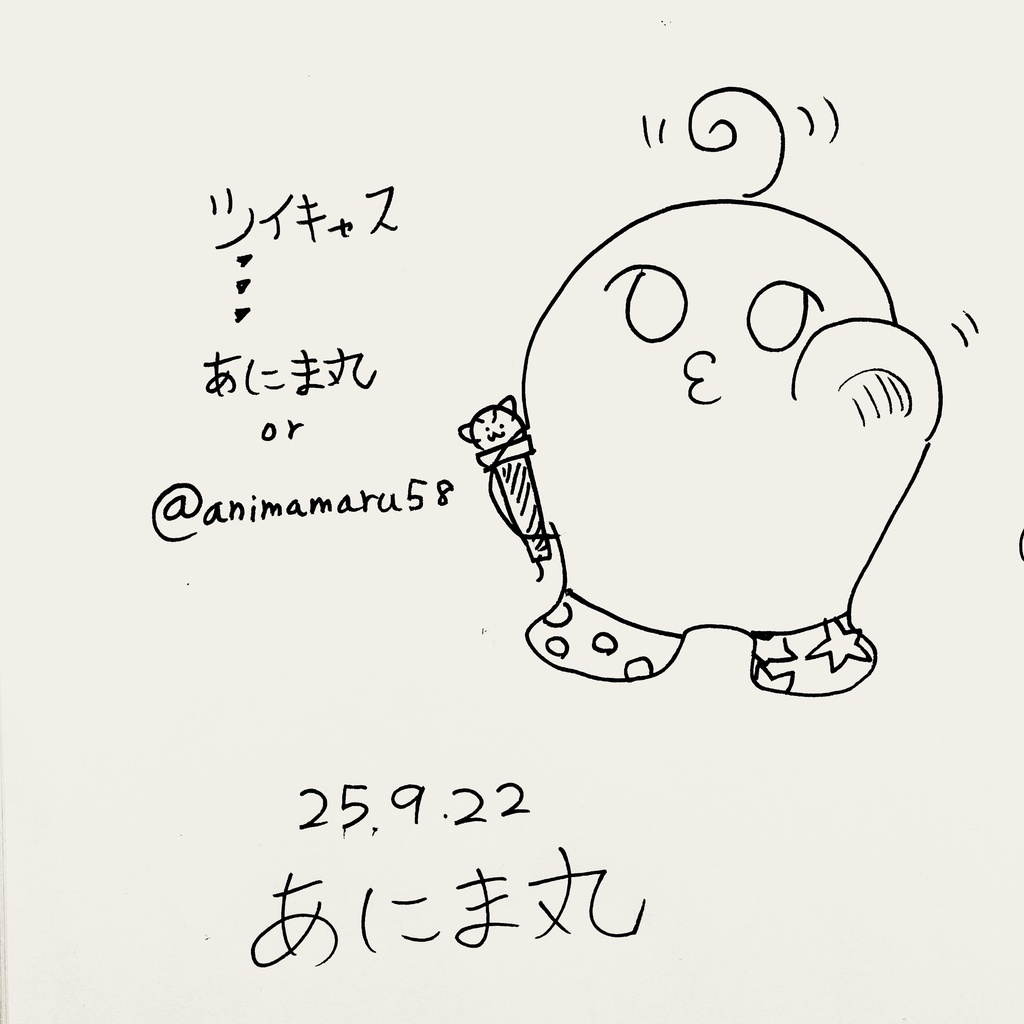 ツイキャス
あにま丸
or
@animamaru58
25.9.22
あにま丸